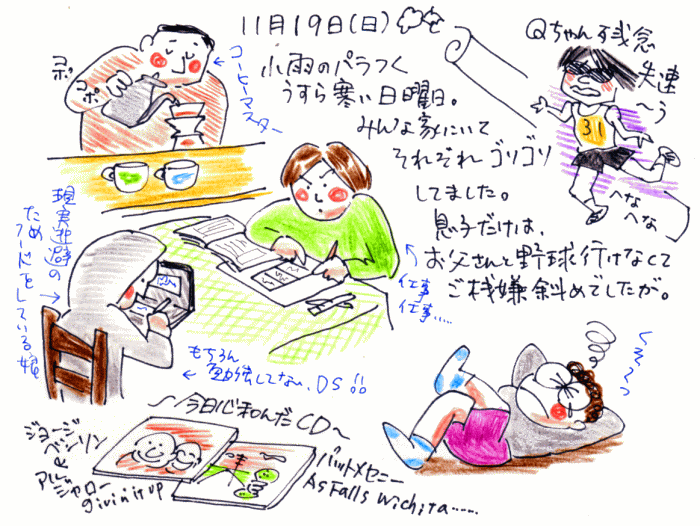 11月19日(日)
小雨のパラつく
うすら寒い日曜日。
みんな家にいて
それぞれゴリゴリ
してました。
息子だけは、
お父さんと野球行けなくて
ご機嫌斜めでしたが。
Qちゃん残念
失速
〜う
31
へな
へな
コポ
コポ
←コーヒーマスター
現実逃避の
ため
フードをしている娘
↑仕事
仕事……
もちろん
←勉強してない、DS!!
くぅ〜っ
〜今日心和んだCD〜
ジョージ
ベンソン
&
アル
ジャロー
givin it up
パットメセニー
As Falls Wichita……